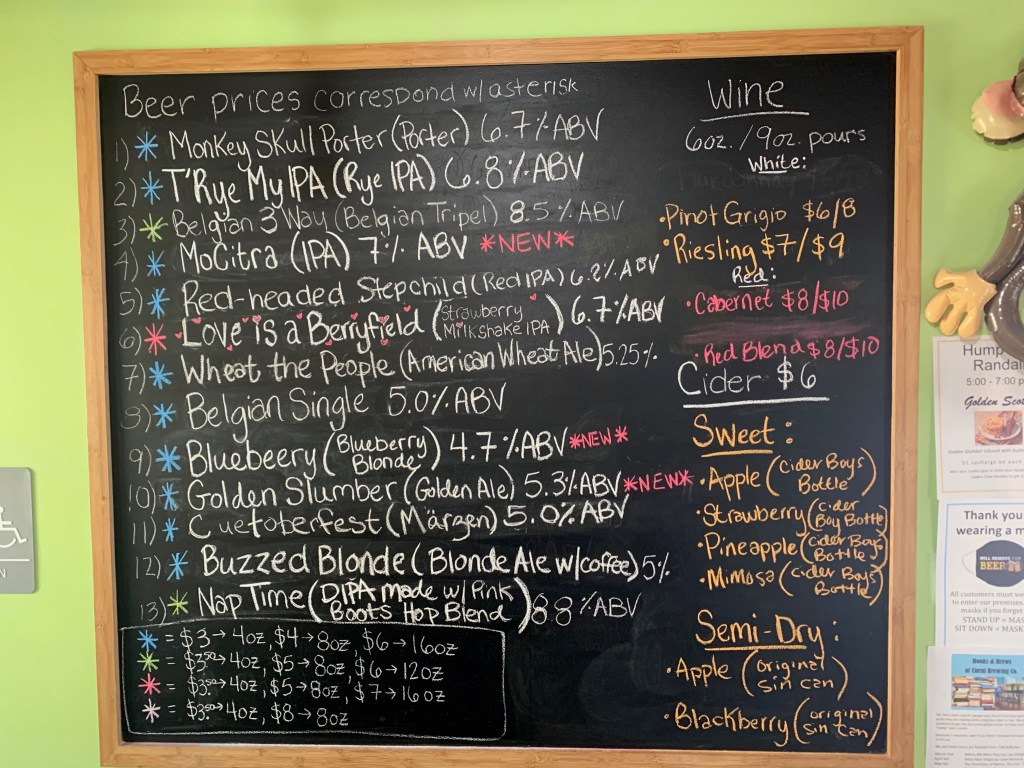 Beer prices correspond w/ asterisk
1) * Monkey Skull Porter (Porter) 6.7% ABV
2) * T'Rye My IPA (Rye IPA) 6.8% ABV
3) * Belgian 3 Way (Belgian Tripel) 8.5% ABV
4) * MoCitra (IPA) 7% ABV *NEW*
5) * Red-headed Stepchild (Red IPA) 6.2% ABV
6) * Love is a Berryfield (Strawberry Milkshake IPA) 6.7% ABV
7) * Wheat the People (American Wheat Ale) 5.25%
8) * Belgian Single 5.0% ABV
9) * Bluebeery (Blueberry Blonde) 4.7% ABV *NEW*
10) * Golden Slumber (Golden Ale) 5.3% ABV *NEW*
11) * Cuetoberfest (Märzen) 5.0% ABV
12) * Buzzed Blonde (Blonde Ale w/coffee) 5%
13) * Nap Time (DIPA made w/ Pink Boots Hop Blend) 8.8% ABV
* = $3→4oz, $4→8oz, $6→16oz
* = $3.50→4oz, $5→8oz, $6→12oz
* = $3.50→4oz, $5→8oz, $7→16oz
* = $3.50→4oz, $8→8oz
Wine
6oz. / 9oz. pours
White:
•Pinot Grigio $6/8
•Riesling $7/$9
Red:
•Cabernet $8/$10
•Red Blend $8/$10
Cider $6
Sweet:
•Apple (Cider Boys Bottle)
•Strawberry (Cider Boy Bottle)
•Pineapple (Cider Boys Bottle)
•Mimosa (Cider Boys Bottle)
Semi-Dry:
•Apple (original sin can)
•Blackberry (original sin can)
5:00 - 7:00 p
Thank you
wearing a m
BEER
All customers must we
to enter our premises.
masks if you forget
STAND UP = MAS
SIT DOWN = MASK
Books & Brews